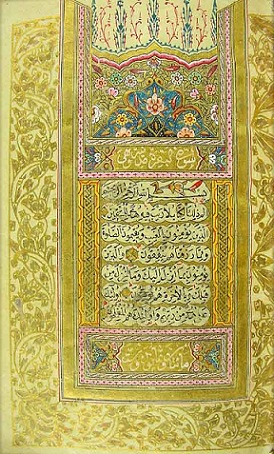 سورة البقرة
بسم الله الرحمن الرحيم
الم ذلك الكتاب لا ريب فيه هدى للمتقين
الذين يؤمنون بالغيب ويقيمون الصلوة
ومما رزقناهم ينفقون والذين
يؤمنون بما انزل اليك وما انزل من
قبلك وبالاخرة هم يوقنون اولئك
على هدى من ربهم واولئك هم المفلحون